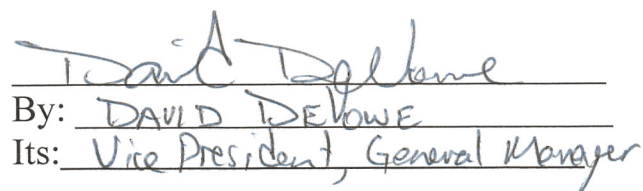 David DeVowe
By: DAVID DEVOWE
Its: Vice President, General Manager